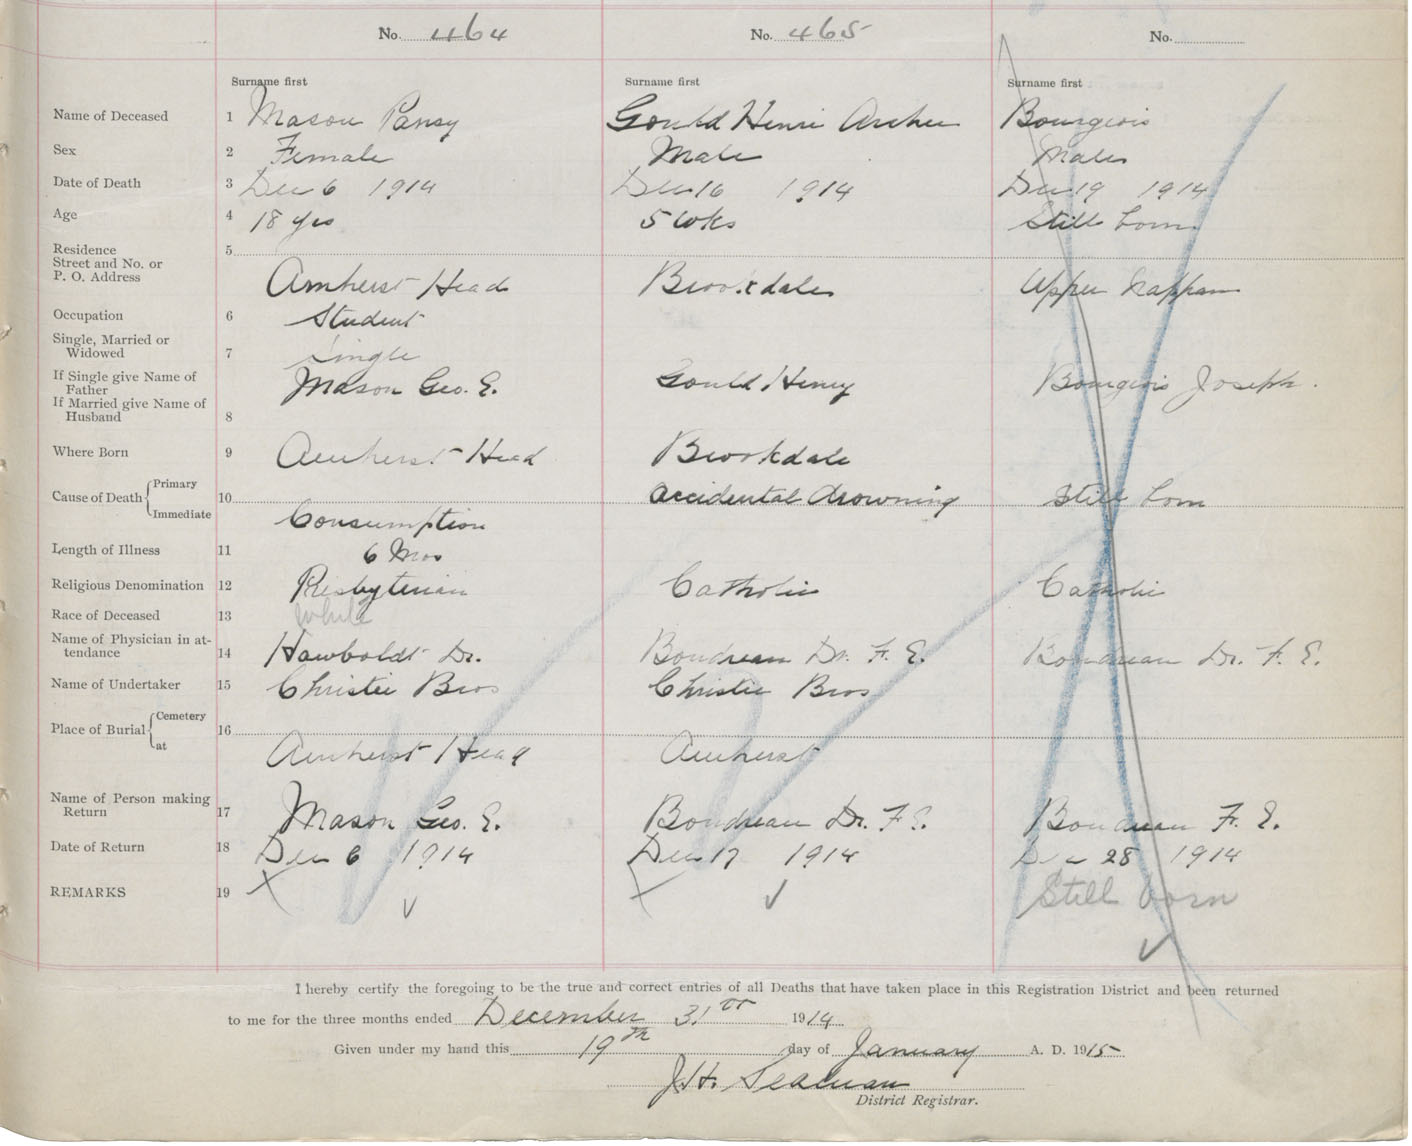 No. 464 No. 465 No.
Surname first Surname first Surname first
Name of Deceased 1 Mason Pansy Gould Henri Archee Bourgeois
Sex 2 Female Male Male
Date of Death 3 Dec 6 1914 Dec 16 1914 Dec 19 1914
Age 4 18 yrs 5 wks Still born
Residence 5
Street and No. or
P. O. Address Amherst Head Brookdale Upper Nappan
Occupation 6 Student
Single, Married or
Widowed 7 Single
If Single give Name of
Father Mason Geo. E. Gould Henry Bourgeois Joseph.
If Married give Name of
Husband 8
Where Born 9 Amherst Head Brookdale
Cause of Death Primary 10 Accidental drowning Still born
Immediate Consumption
Length of Illness 11 6 Mos
Religious Denomination 12 Presbyterian Catholic Catholic
Race of Deceased 13 White
Name of Physician in at-
tendance 14 Hawboldt Dr. Boudreau Dr. F. E. Boudreau Dr. F. E.
Name of Undertaker 15 Christie Bros Christie Bros
Place of Burial Cemetery 16
at Amherst Head Amherst
Name of Person making
Return 17 Mason Geo. E. Boudreau Dr. F. E. Boudreau F. E.
Date of Return 18 Dec 6 1914 Dec 17 1914 Dec 28 1914
REMARKS 19 Still born
I hereby certify the foregoing to be the true and correct entries of all Deaths that have taken place in this Registration District and been returned
to me for the three months ended December 31st 1914
Given under my hand this 19th day of January A. D. 1915
J. H. Seaman
District Registrar.